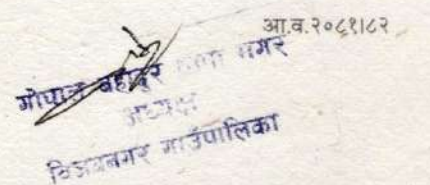 आ.व.२०८१।८२
गोपाल बहादुर थापा मगर
अध्यक्ष
विजयनगर गाउँपालिका